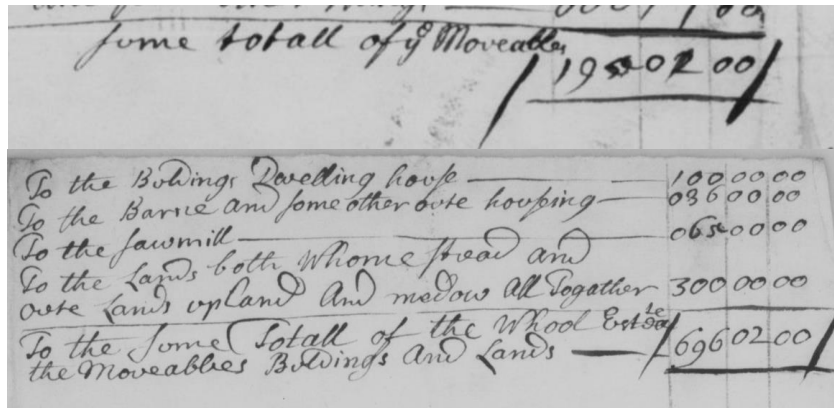 some totall of yᵉ Moveables 195 02 00
To the Buldings Dwelling house — 100 00 00
To the Barne and some other oute housing — 036 00 00
To the sawmill — 065 00 00
To the Lands both Whome stead and
oute Lands upland And medow All Togather 300 00 00
To the some Totall of the Whool Estate
the Moveables Buldings And Lands — 696 02 00